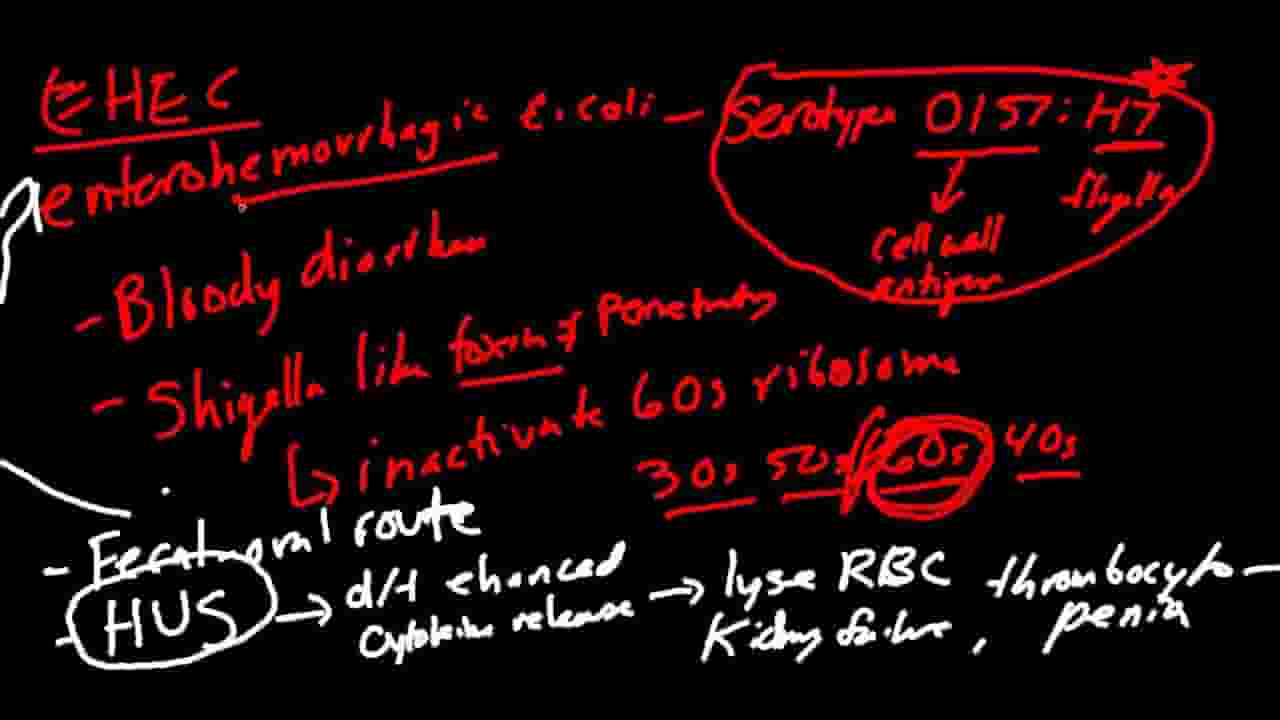 EHEC
enterohemorrhagic E.coli – Serotype O157:H7
flagella
cell wall
antigen
- Bloody diarrhea
- Shigella like toxin penetrates
↳ inactivate 60s ribosome
30s 50s 60s 40s
- Fecal oral route
- HUS → d/t ehanced cytokine release → lyse RBC
Kidney failure, thrombocytopenia